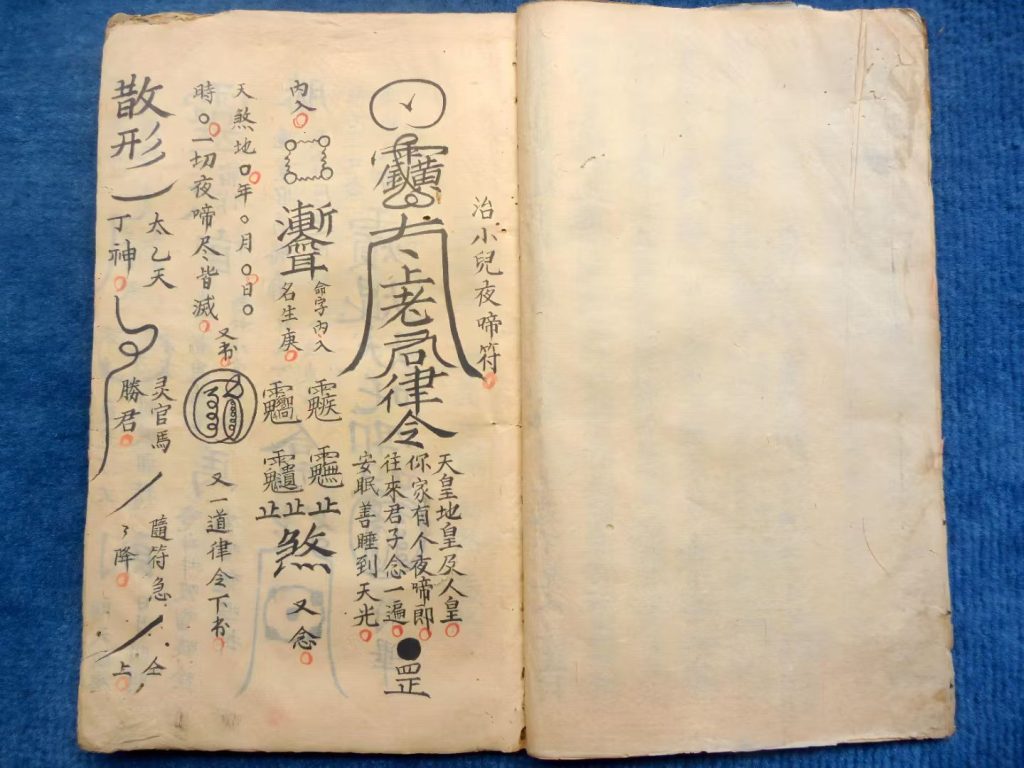 治小兒夜啼符
太上老君律令
罡
天皇地皇及人皇
你家有个夜啼郎
往來君子念一遍
安眠善睡到天光
內入
漸耳
命字內入
名生庚
止止止
煞
又念
天煞地〇年〇月〇日〇
時〇一切夜啼尽皆滅
又书
又一道律令下书
散形
太乙天
丁神
灵官馬
勝君
隨符急
了降
仝
上